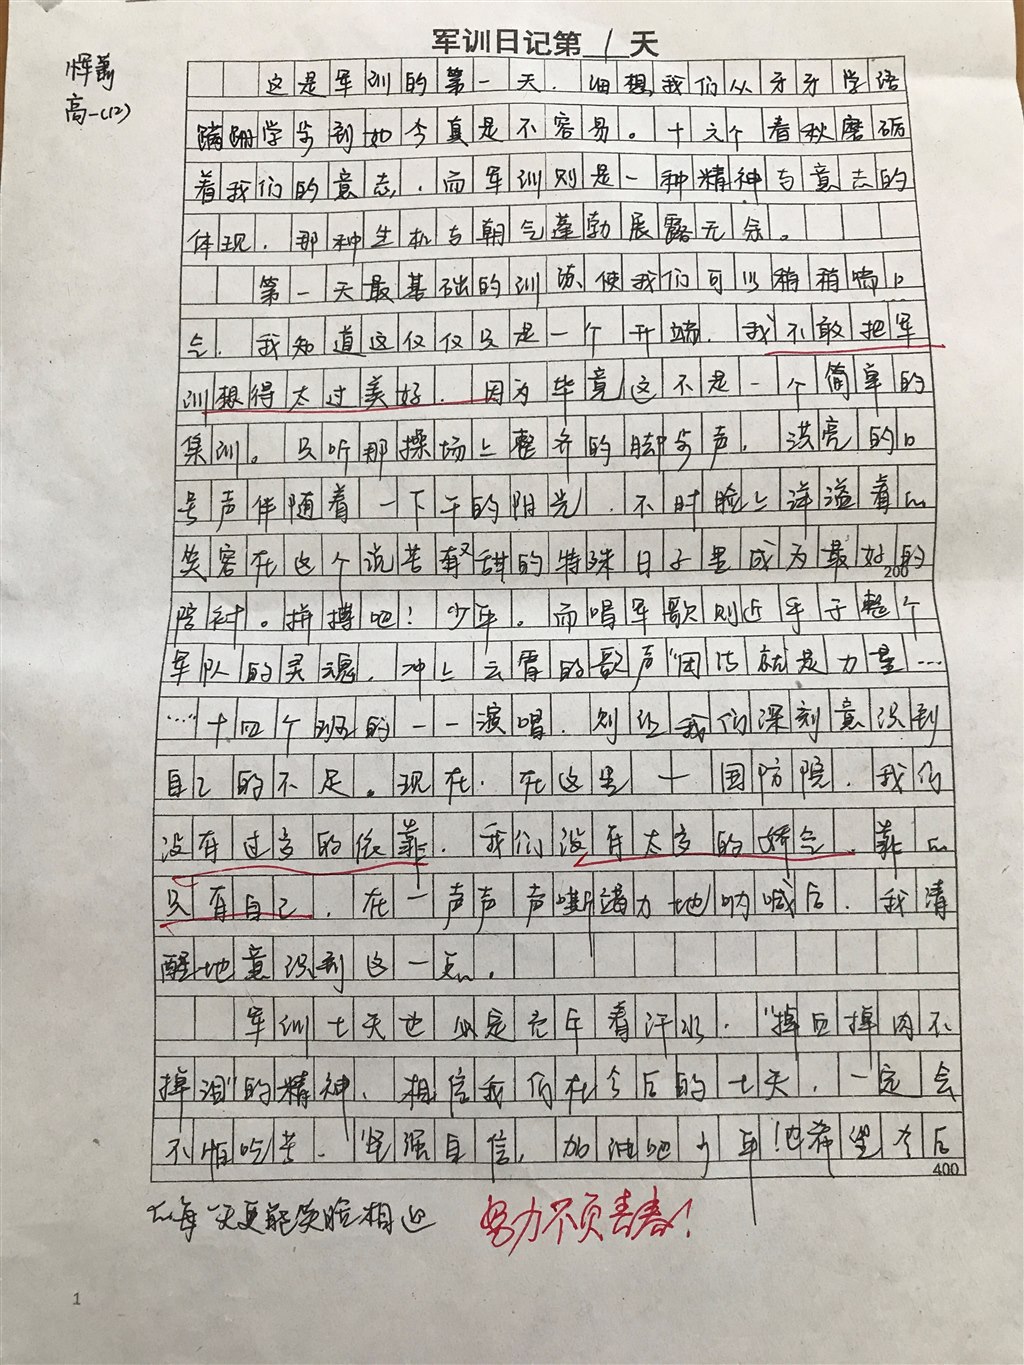 军训日记第1天
恽蕭
高一(12)
这是军训的第一天.细想,我们从牙牙学语
蹒跚学步到如今真是不容易。十六个春秋磨砺
着我们的意志,而军训则是一种精神与意志的
体现.那种生机与朝气蓬勃展露无余。
第一天最基础的训练使我们可以稍稍喘口
气.我知道这仅仅只是一个开端.我不敢把军
训想得太过美好.因为毕竟这不是一个简单的
集训。只听那操场上整齐的脚步声,洪亮的口
号声伴随着一下午的阳光.不时脸上洋溢着的
笑容在这个说苦有又甜的特殊日子里成为最好的
200
陪衬。拼搏吧!少年。而唱军歌则近乎于整个
军队的灵魂.冲上云霄的歌声"团结就是力量…
…"十四个班的一一演唱.则让我们深刻意识到
自己的不足。现在.在这里一国防院.我们
没有过多的依靠.我们没有太多的娇气.靠的
只有自己.在一声声声嘶竭力地呐喊后.我清
醒地意识到这一点.
军训七天也必定充斥着汗水."掉皮掉肉不
掉泪"的精神.相信我们在今后的七天.一定会
不怕吃苦.坚强自信.加油吧少年!也希望今后
400
在每一天更能笑脸相迎
努力不负青春!
1